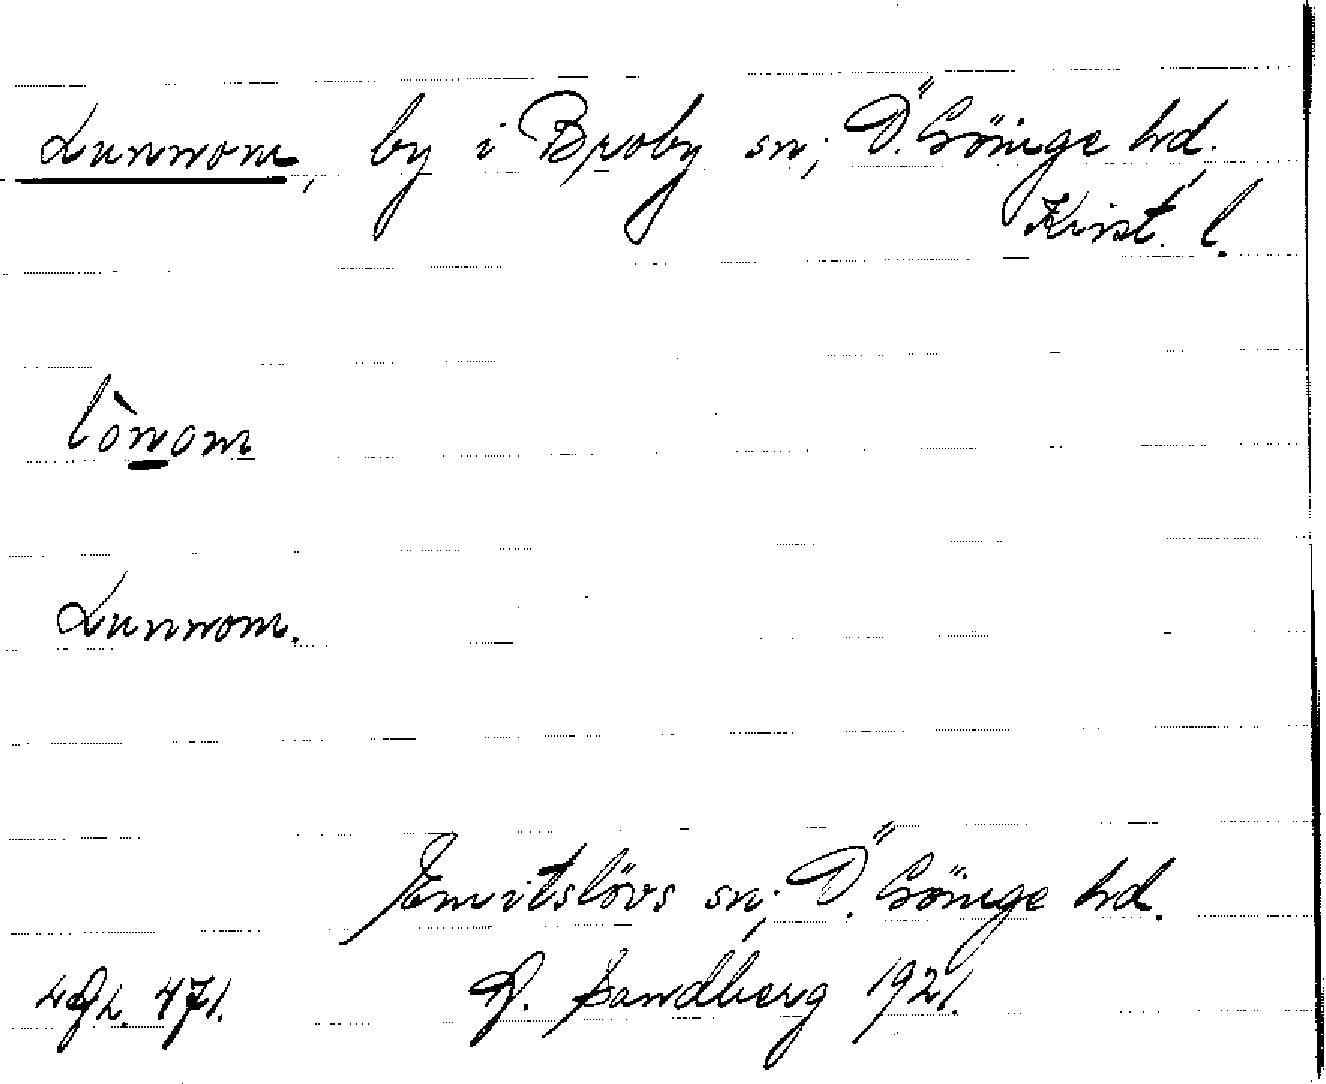 Lunnom, by i Broby sn, Ö. Göinge hd.
Krist. l.
lònom
Lunnom.
Emitslövs sn, Ö. Göinge hd.
471. Sandberg 1921.